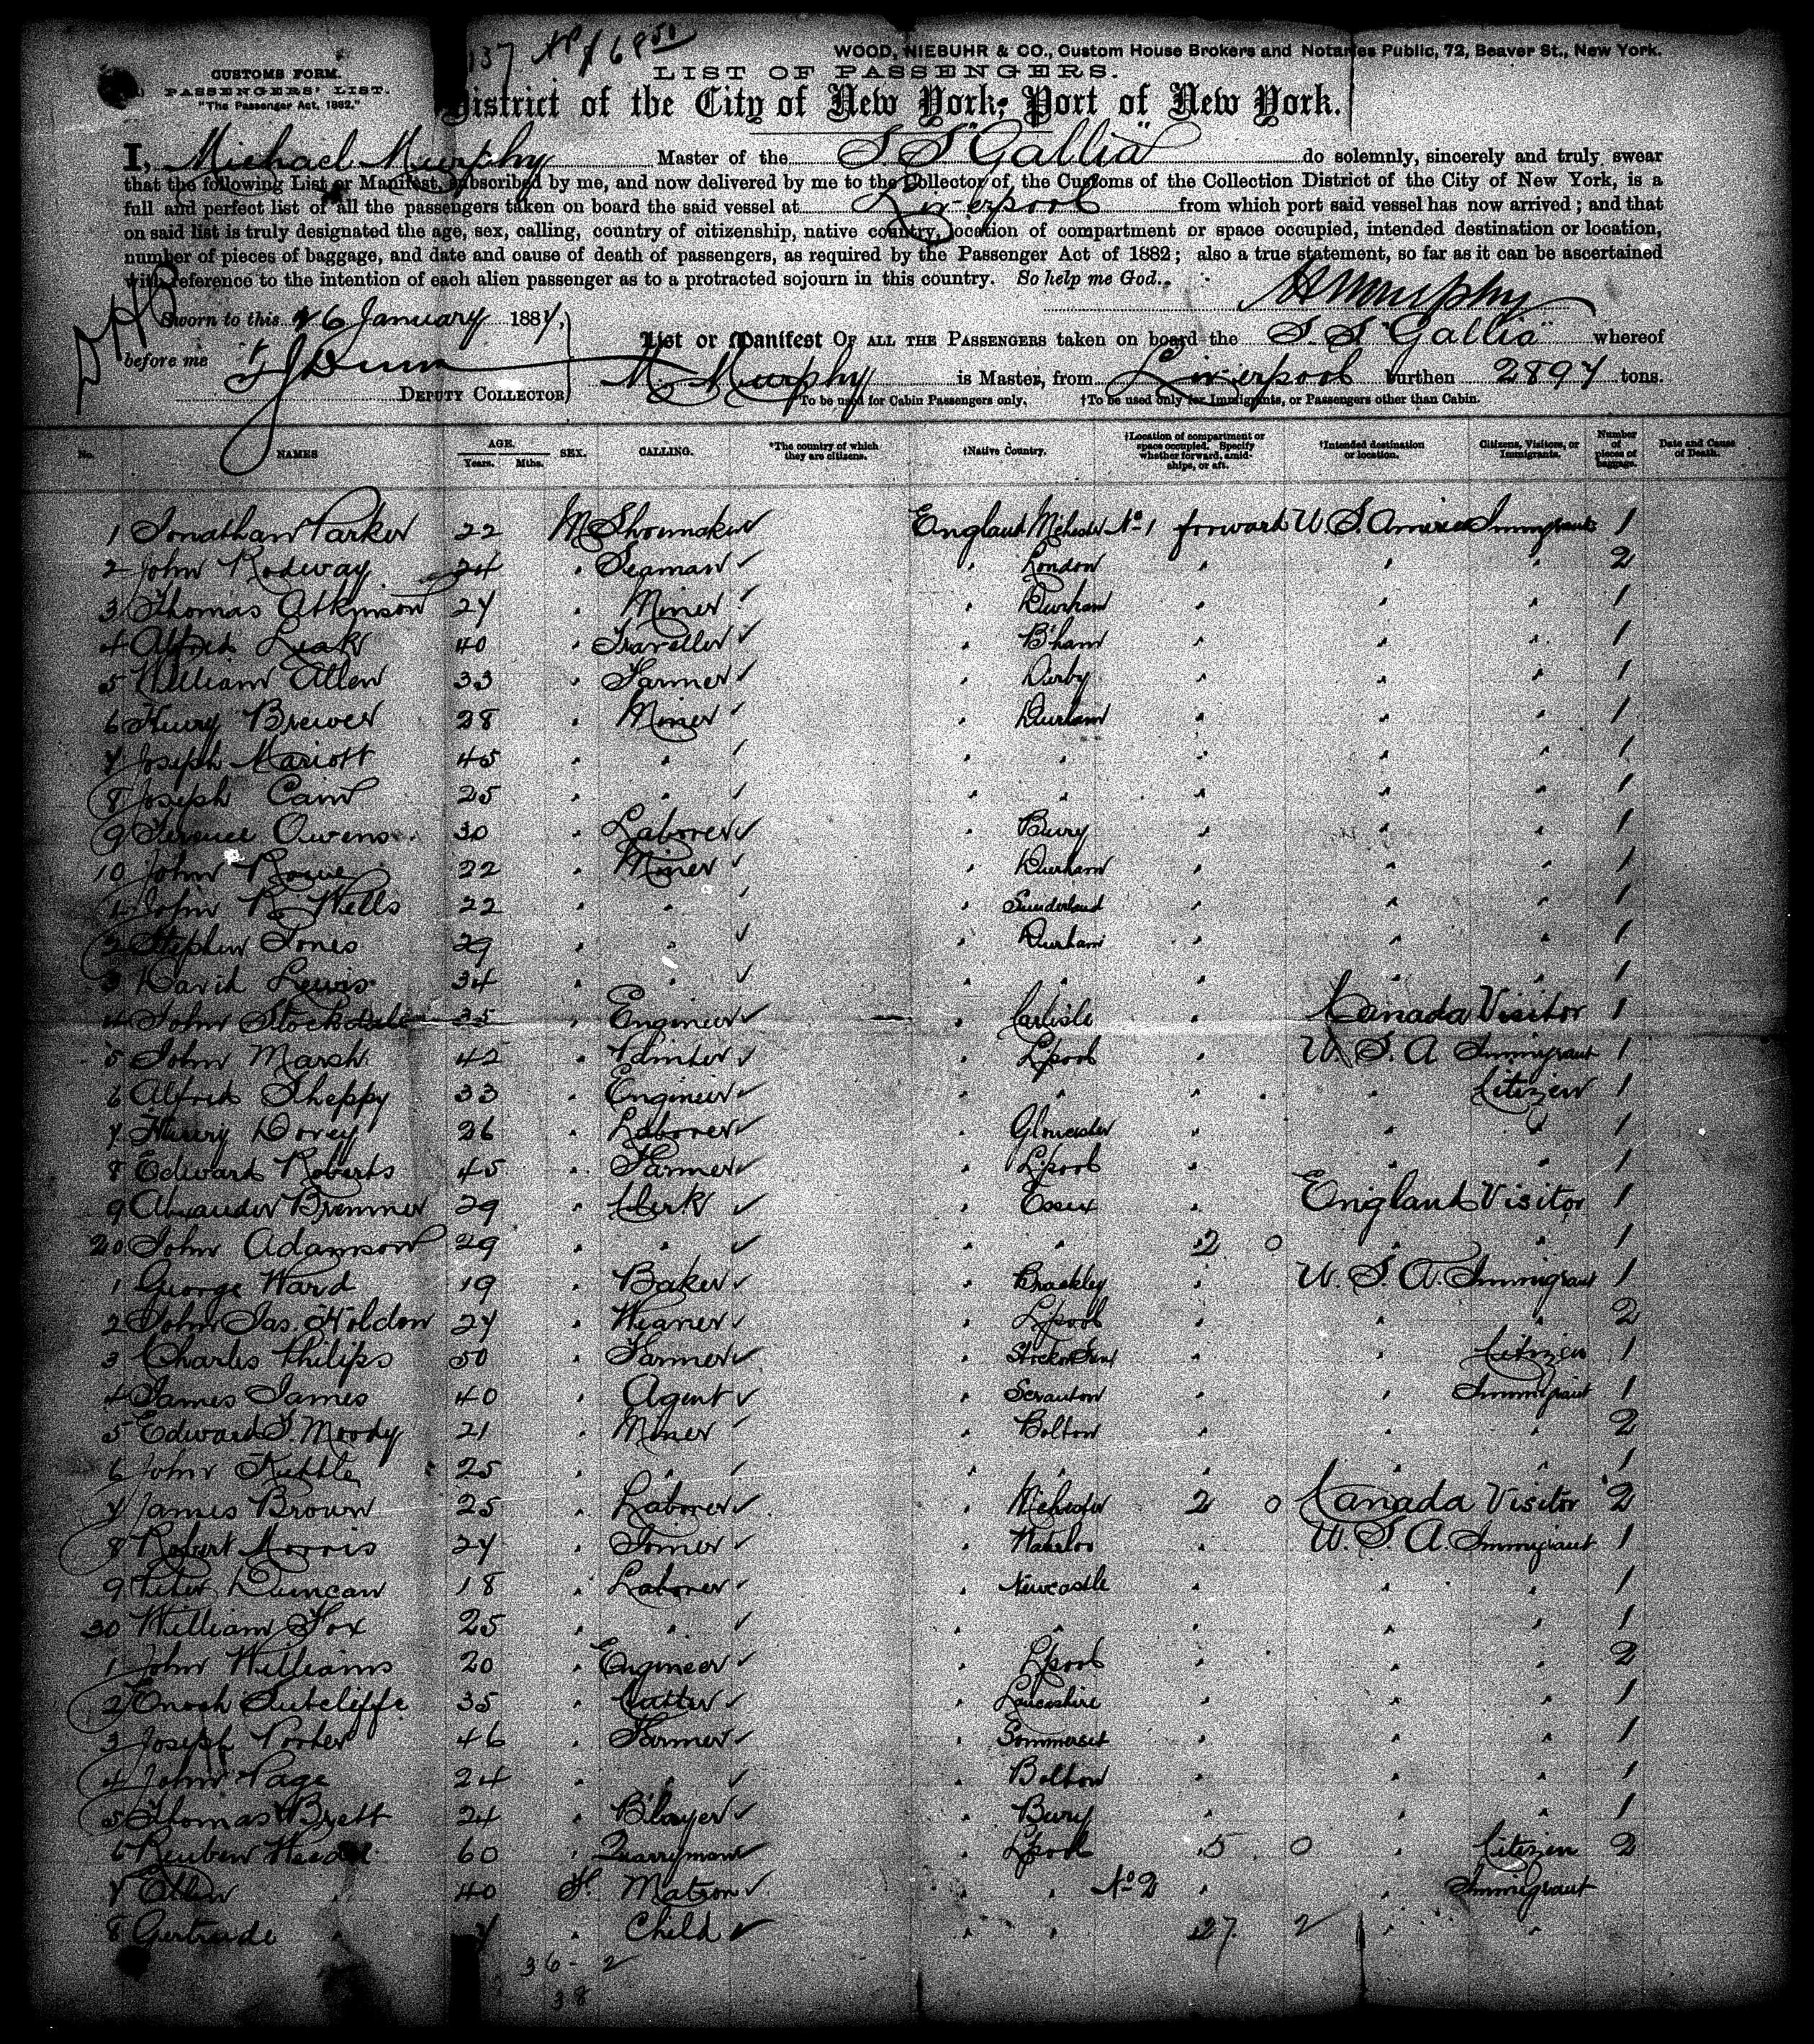 137 No. of 68 50
WOOD, NIEBUHR & CO., Custom House Brokers and Notaries Public, 72, Beaver St., New York.
CUSTOMS FORM.
PASSENGERS' LIST.
"The Passenger Act, 1882."
LIST OF PASSENGERS.
District of the City of New York, Port of New York.
I, Michael Murphy Master of the S S "Gallia" do solemnly, sincerely and truly swear
that the following List or Manifest, subscribed by me, and now delivered by me to the Collector of the Customs of the Collection District of the City of New York, is a
full and perfect list of all the passengers taken on board the said vessel at Liverpool from which port said vessel has now arrived; and that
on said list is truly designated the age, sex, calling, country of citizenship, native country, location of compartment or space occupied, intended destination or location,
number of pieces of baggage, and date and cause of death of passengers, as required by the Passenger Act of 1882; also a true statement, so far as it can be ascertained
with reference to the intention of each alien passenger as to a protracted sojourn in this country. So help me God.
M Murphy
Sworn to this 26 January 1887,
before me
DEPUTY COLLECTOR
List or Manifest OF ALL THE PASSENGERS taken on board the S. S "Gallia" whereof
M. Murphy is Master, from Liverpool burthen 2897 tons.
*To be used for Cabin Passengers only. †To be used only for Immigrants, or Passengers other than Cabin.
No. NAMES AGE. Years. Mths. SEX. CALLING. *The country of which they are citizens. †Native Country. †Location of compartment or space occupied. Specify whether forward, amidships, or aft. †Intended destination or location. Citizens, Visitors, or Immigrants. Number of pieces of baggage. Date and Cause of Death.
1 Jonathan Parker 22 M Shoemaker England Mchester No. 1 forward U. S. America Immigrants 1
2 John Rodway 24 " Seaman " London " " " 2
3 Thomas Atkinson 27 " Miner " Durham " " " 1
4 Alfred Leak 40 " Traveller " B'ham " " " 1
5 William Allen 33 " Farmer " Derby " " " 1
6 Henry Brewer 28 " Miner " Durham " " " 1
7 Joseph Mariott 45 " " " " " " " 1
8 Joseph Cain 25 " " " " " " " 1
9 Terence Owens 30 " Laborer " Bury " " " 1
10 John Rowe 22 " Miner " Durham " " " 1
1 John R. Wells 22 " " " Sunderland " " " 1
2 Stephen Jones 29 " " " Durham " " " 1
3 David Lewis 34 " " " " " " " 1
4 John Stockdale 35 " Engineer " Carlisle " Canada Visitor 1
5 John Marsh 42 " " L'pool " U. S. A Immigrant 1
6 Alfred Sheppy 33 " Engineer " " " " Citizen 1
7 Henry Dovey 26 " Laborer " Gloucester " " " 1
8 Edward Roberts 45 " Farmer " L'pool " " " 1
9 Alexander Bremner 29 " Clerk " Essex " England Visitor 1
20 John Adamson 29 " " " " 2 0 " " 1
1 George Ward 19 " Baker " Brackley " U. S. A. Immigrant 1
2 John Jas. Holden 27 " Weaver " L'pool " " " 2
3 Charles Philips 50 " Farmer " " " Citizen 1
4 James James 40 " Agent " Scranton " " Immigrant 1
5 Edward J. Moody 21 " Miner " Bolton " " " 2
6 John Kettle 25 " " " " " " " 1
7 James Brown 25 " Laborer " Mchester 2 0 Canada Visitor 2
8 Robert Morris 27 " Joiner " Waterloo " U. S. A. Immigrant 1
9 Peter Duncan 18 " Laborer " Newcastle " " " 1
30 William Fox 25 " " " " " " " 1
1 John Williams 20 " Engineer " L'pool " " " 2
2 Enoch Sutcliffe 35 " Cutter " Lancashire " " " 1
3 Joseph Porter 46 " Farmer " Sommerset " " " 1
4 John Page 24 " " " Bolton " " " 1
5 Thomas Brett 24 " B'layer " Bury " " " 1
6 Reuben 60 " Quarryman " L'pool 5 0 " Citizen 2
7 Ellen " 40 F. Matron " " No. 2 " " Immigrant
8 Gertrude " 7 " Child " " 27 2 " "
36 - 2
38